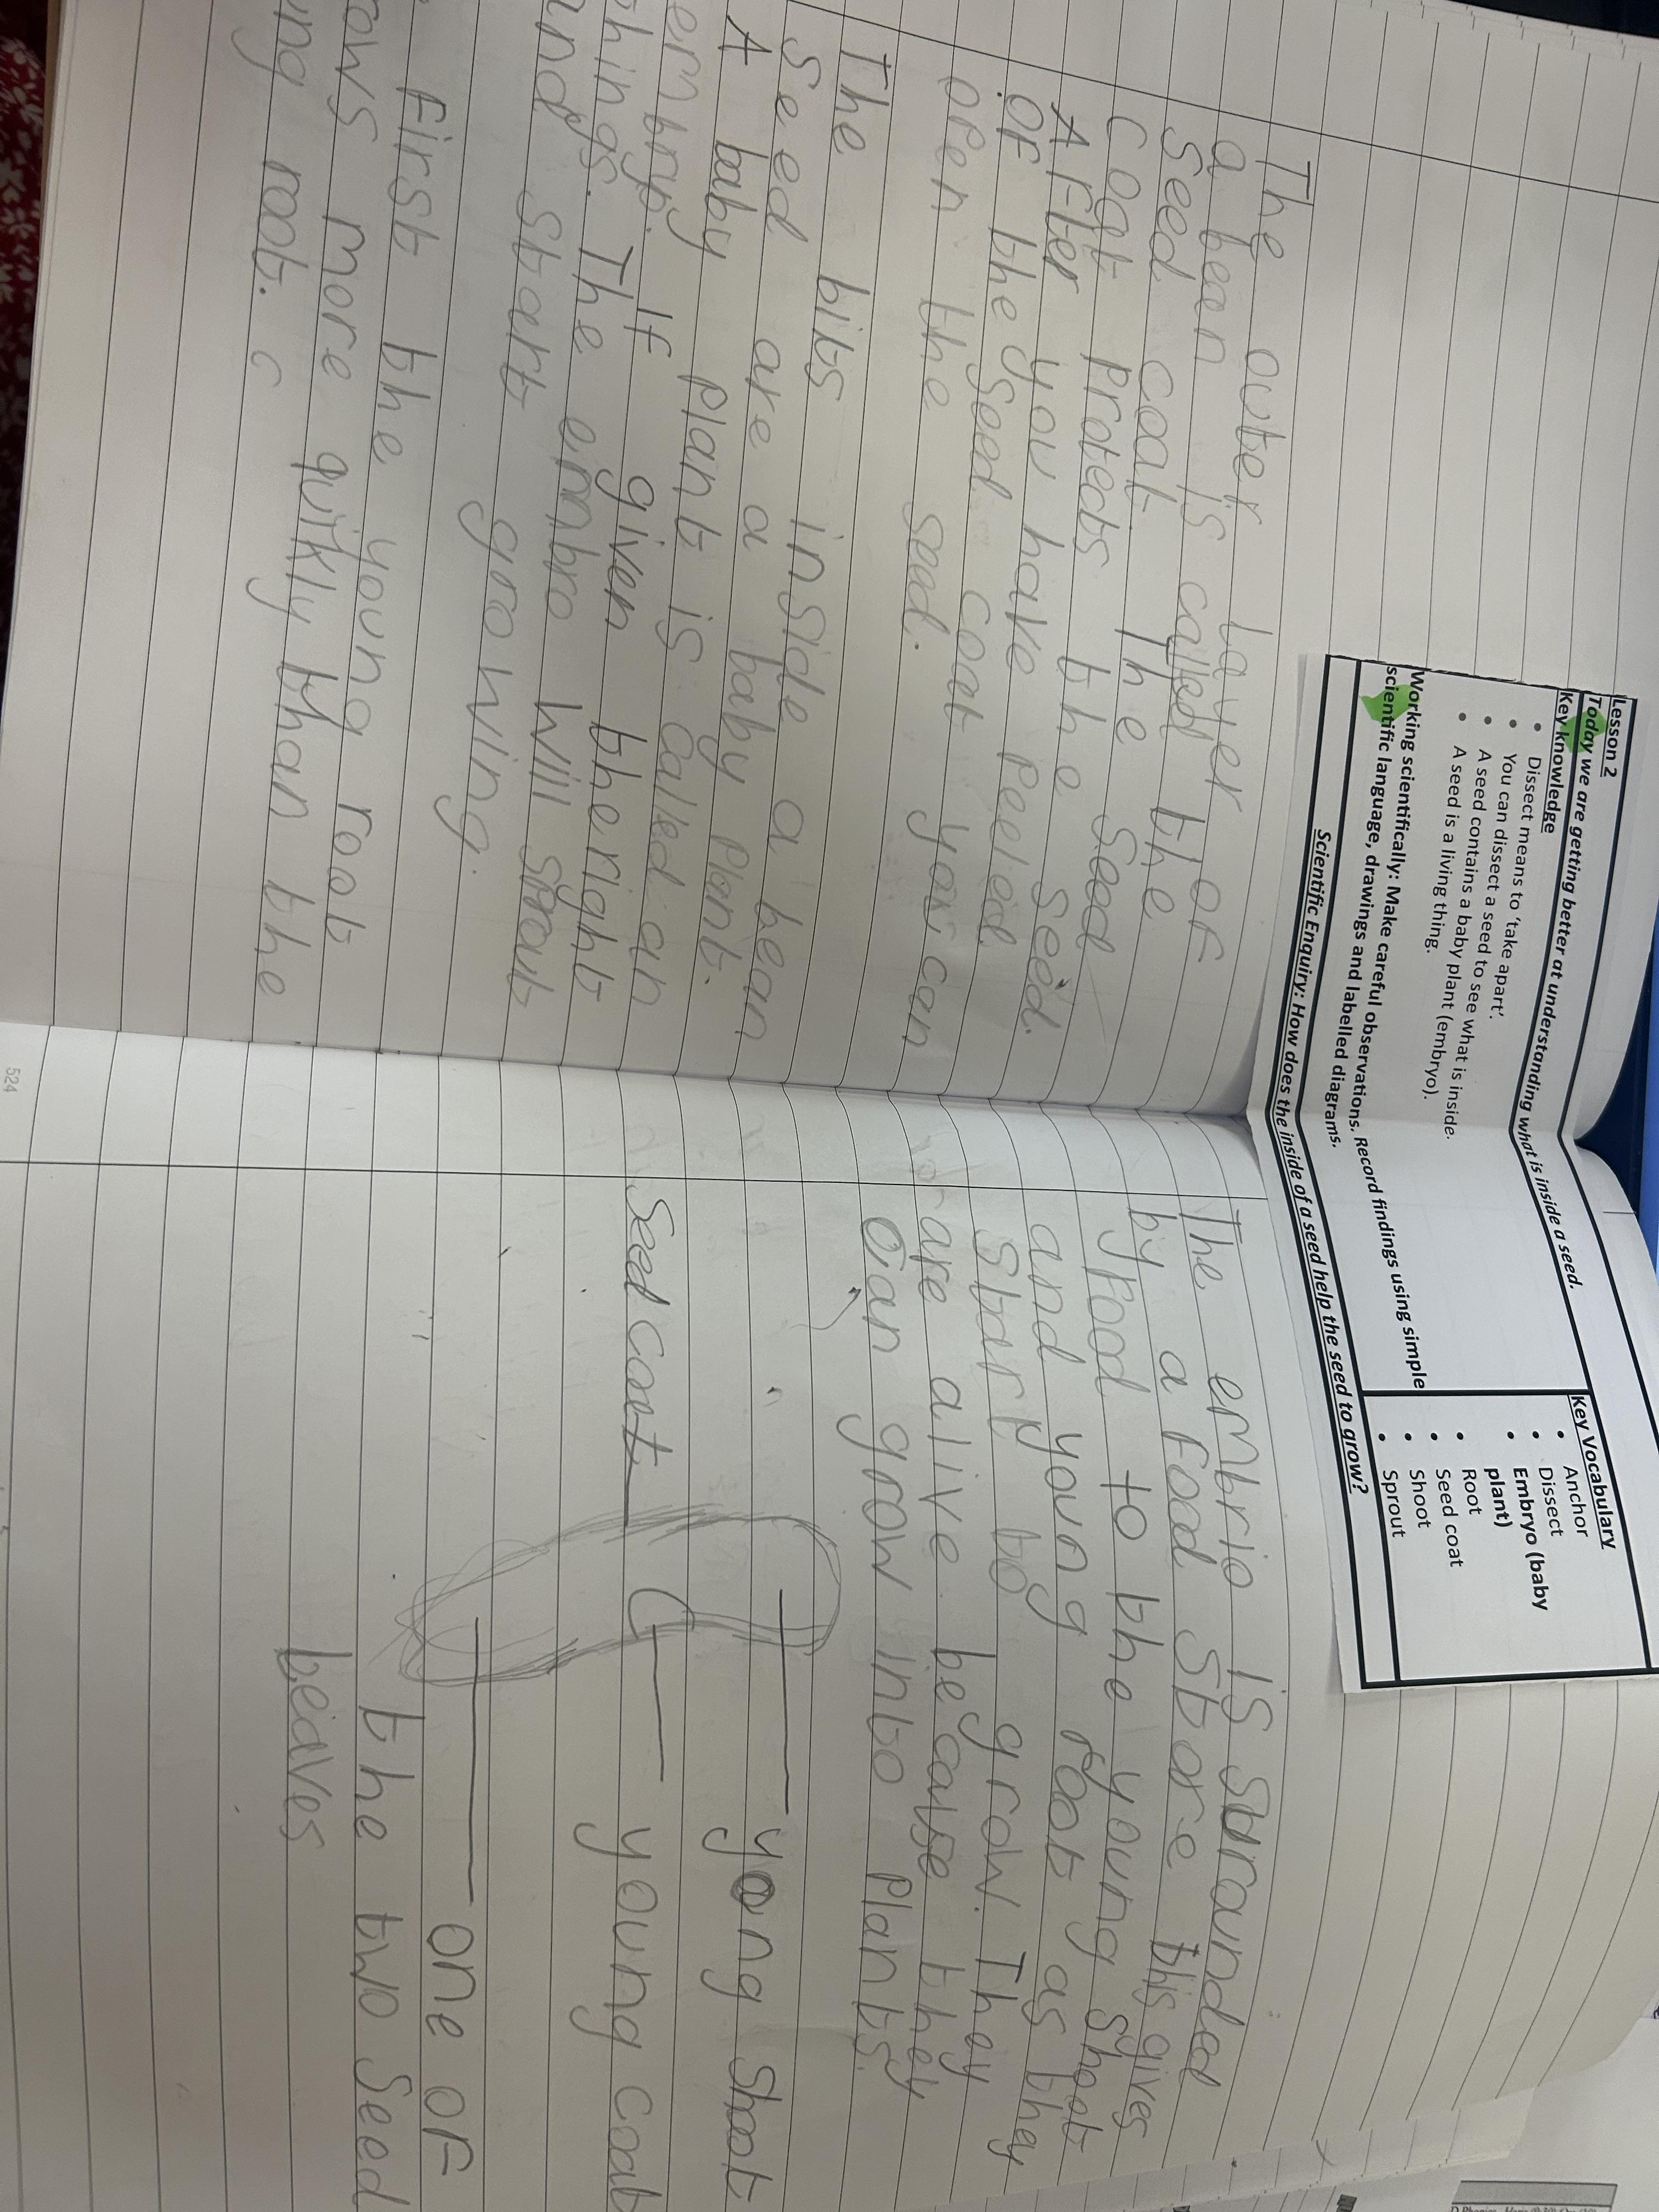 Lesson 2
Today we are getting better at understanding what is inside a seed.
Key knowledge
• Dissect means to 'take apart'.
• You can dissect a seed to see what is inside.
• A seed contains a baby plant (embryo).
• A seed is a living thing.
Working scientifically: Make careful observations. Record findings using simple
scientific language, drawings and labelled diagrams.
Key Vocabulary
• Anchor
• Dissect
• Embryo (baby
plant)
• Root
• Seed coat
• Shoot
• Sprout
Scientific Enquiry: How does the inside of a seed help the seed to grow?
The outer layer of
a bean is called the
Seed coat. The
Coat Protects the Seed
After you have Peeled
OF the seed coat you can
open the seed.
The bits inside a bean
Seed are a baby Plant.
A baby Plant is called an
embryo. IF given the right
things. The embro will sprout
and start growing.
First the young root
ows more quitkly than the
ung root. c
The embrio is surounded
by a Food store this gives
food to the young shoot
and young root as they
start to grow. They
are alive because they
can grow into Plants.
yong shoot
Seed coat
young coat
one of
the two Seed
Leaves
524